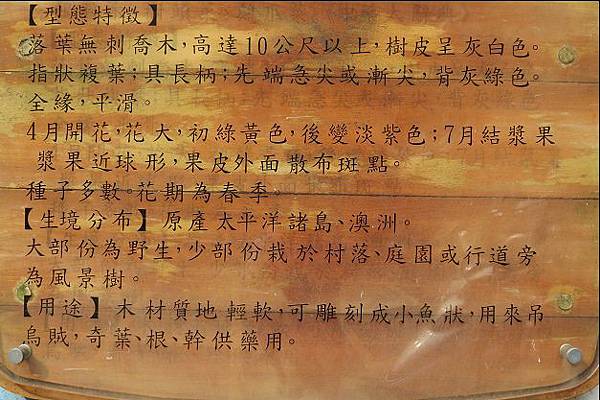 【型態特徵】
落葉無刺喬木,高達10公尺以上,樹皮呈灰白色。
指狀複葉;具長柄;先端急尖或漸尖,背灰綠色。
全緣,平滑。
4月開花,花大,初綠黃色,後變淡紫色;7月結漿果
漿果近球形,果皮外面散布斑點。
種子多數。花期為春季。
【生境分布】原產太平洋諸島、澳洲。
大部份為野生,少部份栽於村落、庭園或行道旁
為風景樹。
【用途】木材質地輕軟,可雕刻成小魚狀,用來吊
烏賊,奇葉、根、幹供藥用。